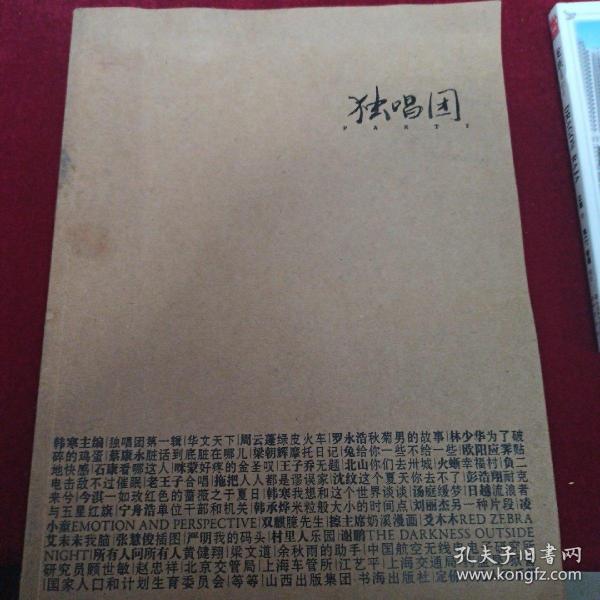 独唱团
PART 1
韩寒主编|独唱团第一辑|华文天下|周云蓬绿皮火车|罗永浩秋菊男的故事|林少华为了破
碎的鸡蛋|蔡康永脏话到底脏在哪儿|梁朝辉摩托日记|兔给你一些不给一些|欧阳应霁贴
地快感|石康看哪这人|咪蒙好疼的金圣叹|王子乔无题|北山你们去卅城|火蜥幸福村|负二
电击敌不过催眠|老王子合唱|拖把人人都是谬误家|沈纹这个夏天你去不了|彭浩翔耐克
来兮|今淇一如玫红色的蔷薇之于夏日|韩寒我想和这个世界谈谈|汤庭缓梦|日越流浪者
与五星红旗|宁舟浩单位干部和机关|韩承烨米粒般大小的时间点|刘丽杰另一种片段|凌
小童EMOTION AND PERSPECTIVE|双麒瞳先生|擦主席奶溪漫画|艾木木RED ZEBRA
艾未未我脑|张慧俊插图|严明我的码头|村里人乐园|谢鹏THE DARKNESS OUTSIDE
NIGHT|所有人问所有人黄健翔|梁文道|余秋雨的助手|中国航空无线电
研究员顾世敏|赵忠祥|北京交管局|上海车管所|江艺平|上海交通局
国家人口和计划生育委员会|等等|山西出版集团 书海出版社|定价
DRAGON RAJA
孔夫子旧书网